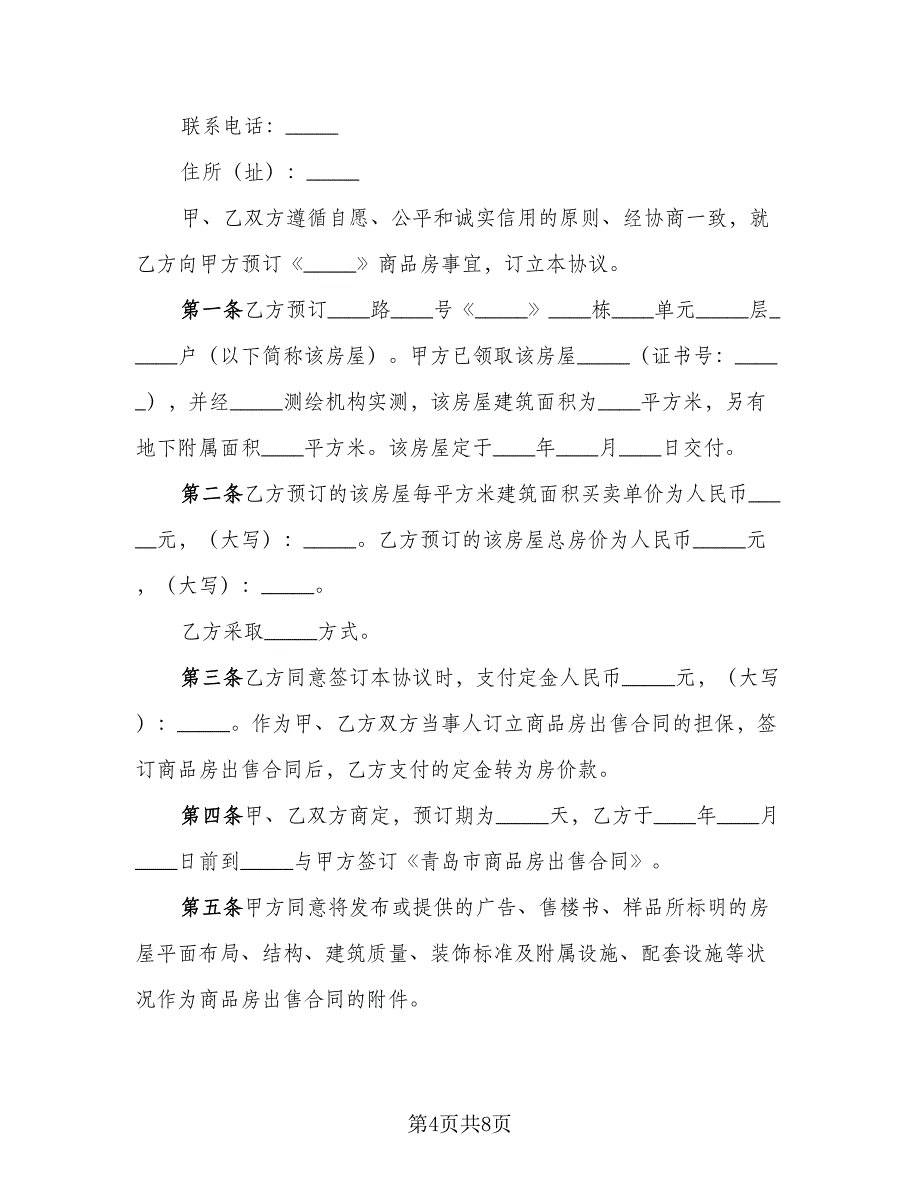 联系电话：_____
住所（址）：_____
甲、乙双方遵循自愿、公平和诚实信用的原则、经协商一致，就
乙方向甲方预订《_____》商品房事宜，订立本协议。
第一条乙方预订____路____号《_____》____栋____单元_____层_
____户（以下简称该房屋）。甲方已领取该房屋_____（证书号：____
_），并经_____测绘机构实测，该房屋建筑面积为____平方米，另有
地下附属面积____平方米。该房屋定于____年____月____日交付。
第二条乙方预订的该房屋每平方米建筑面积买卖单价为人民币___
__元，（大写）：_____。乙方预订的该房屋总房价为人民币_____元
，（大写）：_____。
乙方采取_____方式。
第三条乙方同意签订本协议时，支付定金人民币_____元，（大写
）：_____。作为甲、乙方双方当事人订立商品房出售合同的担保，签
订商品房出售合同后，乙方支付的定金转为房价款。
第四条甲、乙双方商定，预订期为_____天，乙方于____年____月
____日前到_____与甲方签订《青岛市商品房出售合同》。
第五条甲方同意将发布或提供的广告、售楼书、样品所标明的房
屋平面布局、结构、建筑质量、装饰标准及附属设施、配套设施等状
况作为商品房出售合同的附件。
第4页共8页